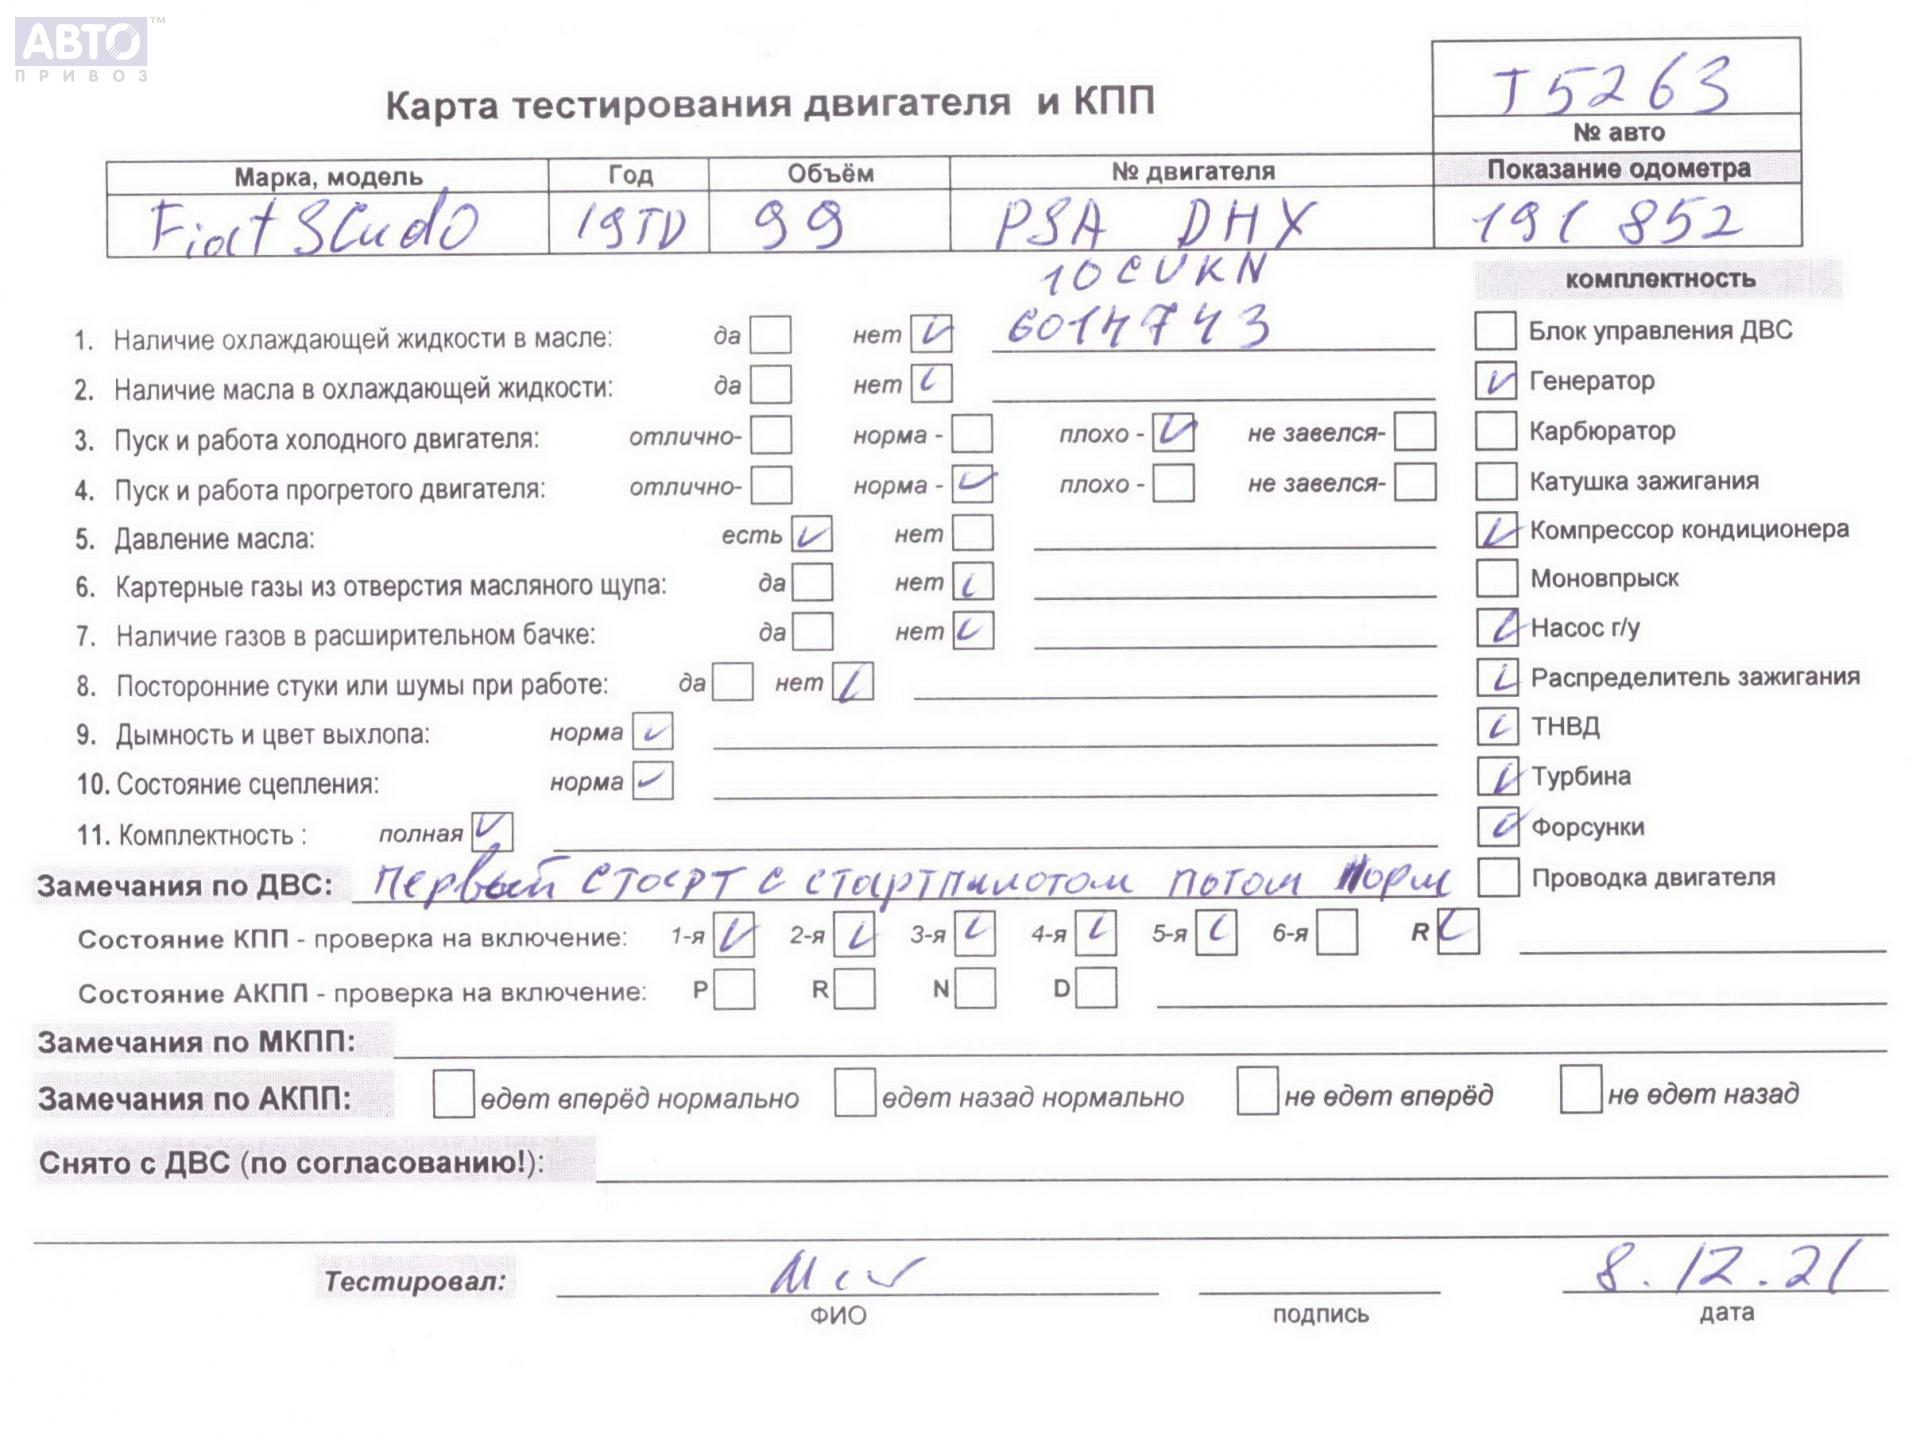 АВТО™
ПРИВОЗ
Т5263
Карта тестирования двигателя и КПП
№ авто
Марка, модель Год Объём № двигателя Показание одометра
Fiat SCudO 19TD 99 PSA DHX 191 852
10CUKN
комплектность
1. Наличие охлаждающей жидкости в масле: да нет 6014743 Блок управления ДВС
2. Наличие масла в охлаждающей жидкости: да нет Генератор
3. Пуск и работа холодного двигателя: отлично- норма - плохо - не завелся- Карбюратор
4. Пуск и работа прогретого двигателя: отлично- норма - плохо - не завелся- Катушка зажигания
5. Давление масла: есть нет Компрессор кондиционера
6. Картерные газы из отверстия масляного щупа: да нет Моновпрыск
7. Наличие газов в расширительном бачке: да нет Насос г/у
8. Посторонние стуки или шумы при работе: да нет Распределитель зажигания
9. Дымность и цвет выхлопа: норма ТНВД
10. Состояние сцепления: норма Турбина
11. Комплектность : полная Форсунки
Замечания по ДВС: первый старт с стартпилотом потом норм Проводка двигателя
Состояние КПП - проверка на включение: 1-я 2-я 3-я 4-я 5-я 6-я R
Состояние АКПП - проверка на включение: P R N D
Замечания по МКПП:
Замечания по АКПП: едет вперёд нормально едет назад нормально не едет вперёд не едет назад
Снято с ДВС (по согласованию!):
Тестировал: 8.12.21
ФИО подпись дата